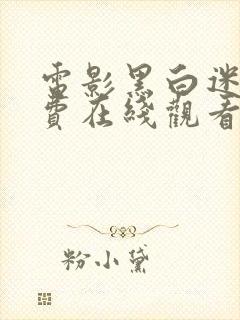 電影黑白迷
費在綫觀看
粉小黛